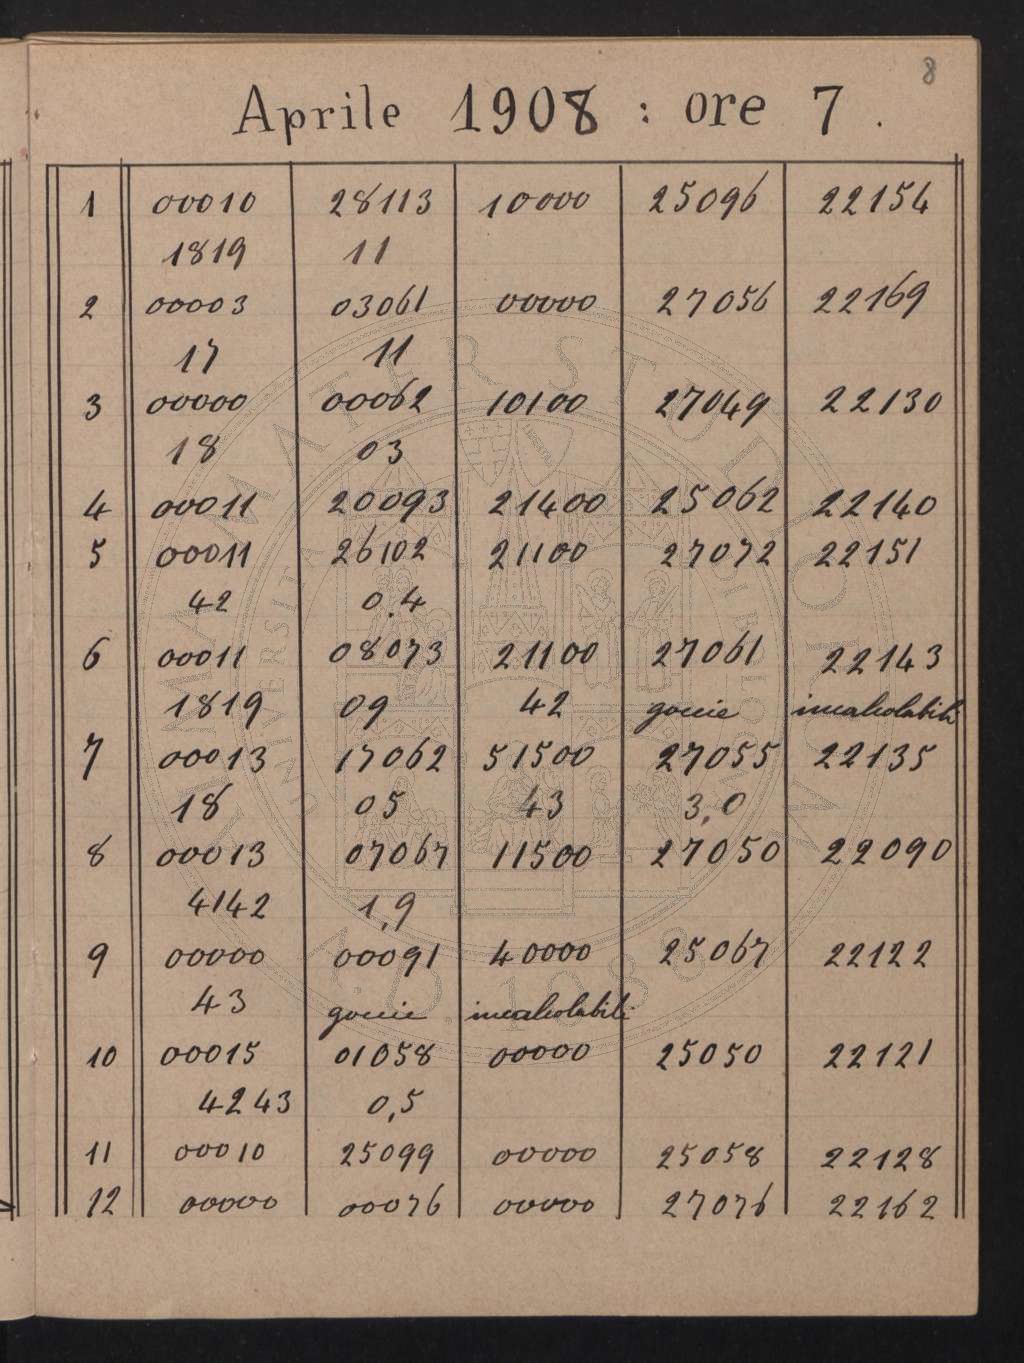 8
Aprile 1908 : ore 7.
1 00010 28113 10000 25096 22154
1819 11
2 00003 03061 00000 27056 22169
17 11
3 00000 00062 10100 27049 22130
18 03
4 00011 20093 21400 25062 22140
5 00011 26102 21100 27072 22151
42 0.4
6 00011 08073 21100 27061 22143
1819 09 42 goccie incalcolabili
7 00013 17062 51500 27055 22135
18 05 43 3,0
8 00013 07067 11500 27050 22090
4142 1,9
9 00000 00091 40000 25067 22122
43 goccie incalcolabili
10 00015 01058 00000 25050 22121
4243 0,5
11 00010 25099 00000 25058 22128
12 00000 00076 00000 27076 22162
ALMA MATER STUDIORUM
A.D. 1088